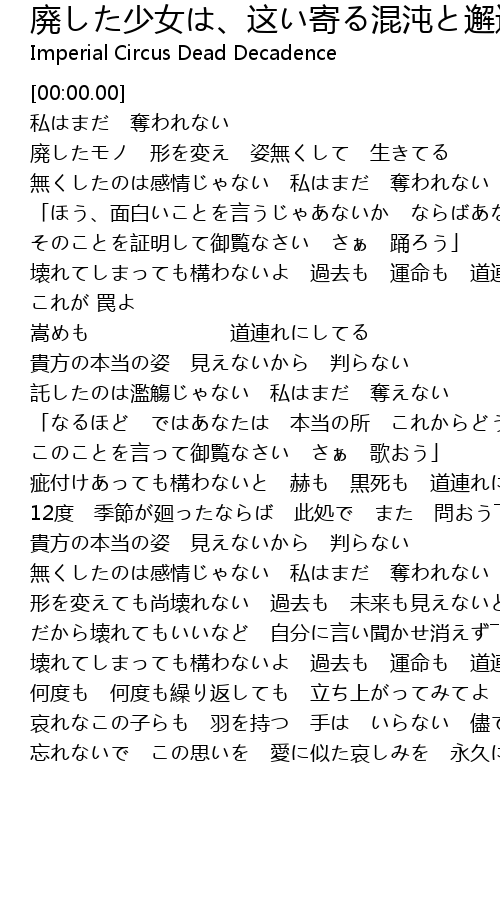 廃した少女は、这い寄る混沌と邂
Imperial Circus Dead Decadence
[00:00.00]
私はまだ　奪われない
廃したモノ　形を変え　姿無くして　生きてる
無くしたのは感情じゃない　私はまだ　奪われない
「ほう、面白いことを言うじゃあないか　ならばあな
そのことを証明して御覧なさい　さぁ　踊ろう」
壊れてしまっても構わないよ　過去も　運命も　道連
これが 罠よ
嵩めも　　　　　　　道連れにしてる
貴方の本当の姿　見えないから　判らない
託したのは濫觴じゃない　私はまだ　奪えない
「なるほど　ではあなたは　本当の所　これからどう
このことを言って御覧なさい　さぁ　歌おう」
疵付けあっても構わないと　赫も　黒死も　道連れに
12度　季節が廻ったならば　此処で　また　問おう
貴方の本当の姿　見えないから　判らない
無くしたのは感情じゃない　私はまだ　奪われない
形を変えても尚壊れない　過去も　未来も見えないと
だから壊れてもいいなど　自分に言い聞かせ消えず
壊れてしまっても構わないよ　過去も　運命も　道連
何度も　何度も繰り返しても　立ち上がってみてよ
哀れなこの子らも　羽を持つ　手は　いらない　儘で
忘れないで　この思いを　愛に似た哀しみを　永久に